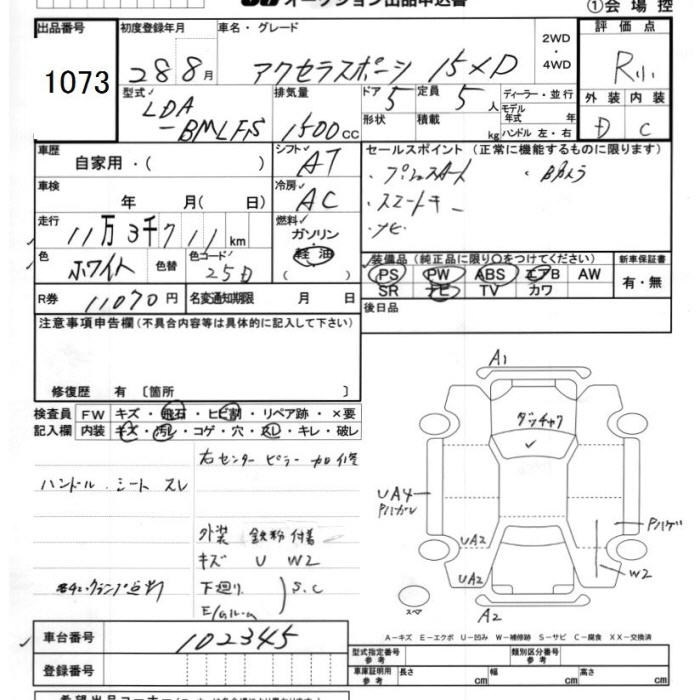 オークション出品申込書
①会場控
出品番号 1073
初度登録年月 28 8月
車名・グレード アクセラスポーツ 15XD
2WD・4WD
評価点 R小
外装 内装
D C
型式 LDA-BMLFS
排気量 1500cc
ドア 5 定員 5人
形状 積載 kg
ディーラー・並行
モデル年式 年
ハンドル 左・右
車歴 自家用・( )
シフト AT
車検 年 月(日)
冷房 AC
走行 11万3千711km
燃料 ガソリン 軽油 ( )
色 ホワイト 色替 色コード 25D
R券 11070円 名変通知期限 月 日
セールスポイント(正常に機能するものに限ります)
・プッシュスタート ・Bカメラ
・スマートキー
・ナビ
装備品(純正品に限り○をつけてください)
PS PW ABS エアB AW
SR ナビ TV カワ
新車保証書
有・無
後日品
注意事項申告欄(不具合内容等は具体的に記入して下さい)
修復歴 有〔箇所 〕
検査員記入欄
FW キズ・飛石・ヒビ割・リペア跡・×要
内装 キズ・汚レ・コゲ・穴・スレ・キレ・破レ
右センターピラー加修
ハンドル、シート スレ
外装 鉄粉付着
キズ U W2
下廻り S、C
E/Gルーム
A1
ダッチャク
UA4
Pハガレ
UA2
UA2
Pハゲ
W2
スペア
A2
A-キズ E-エクボ U-凹み W-補修跡 S-サビ C-腐食 XX-交換済
車台番号 102345
登録番号
型式指定番号 参考 類別区分番号 参考
車庫証明用 参考 長さ cm 幅 cm 高さ cm